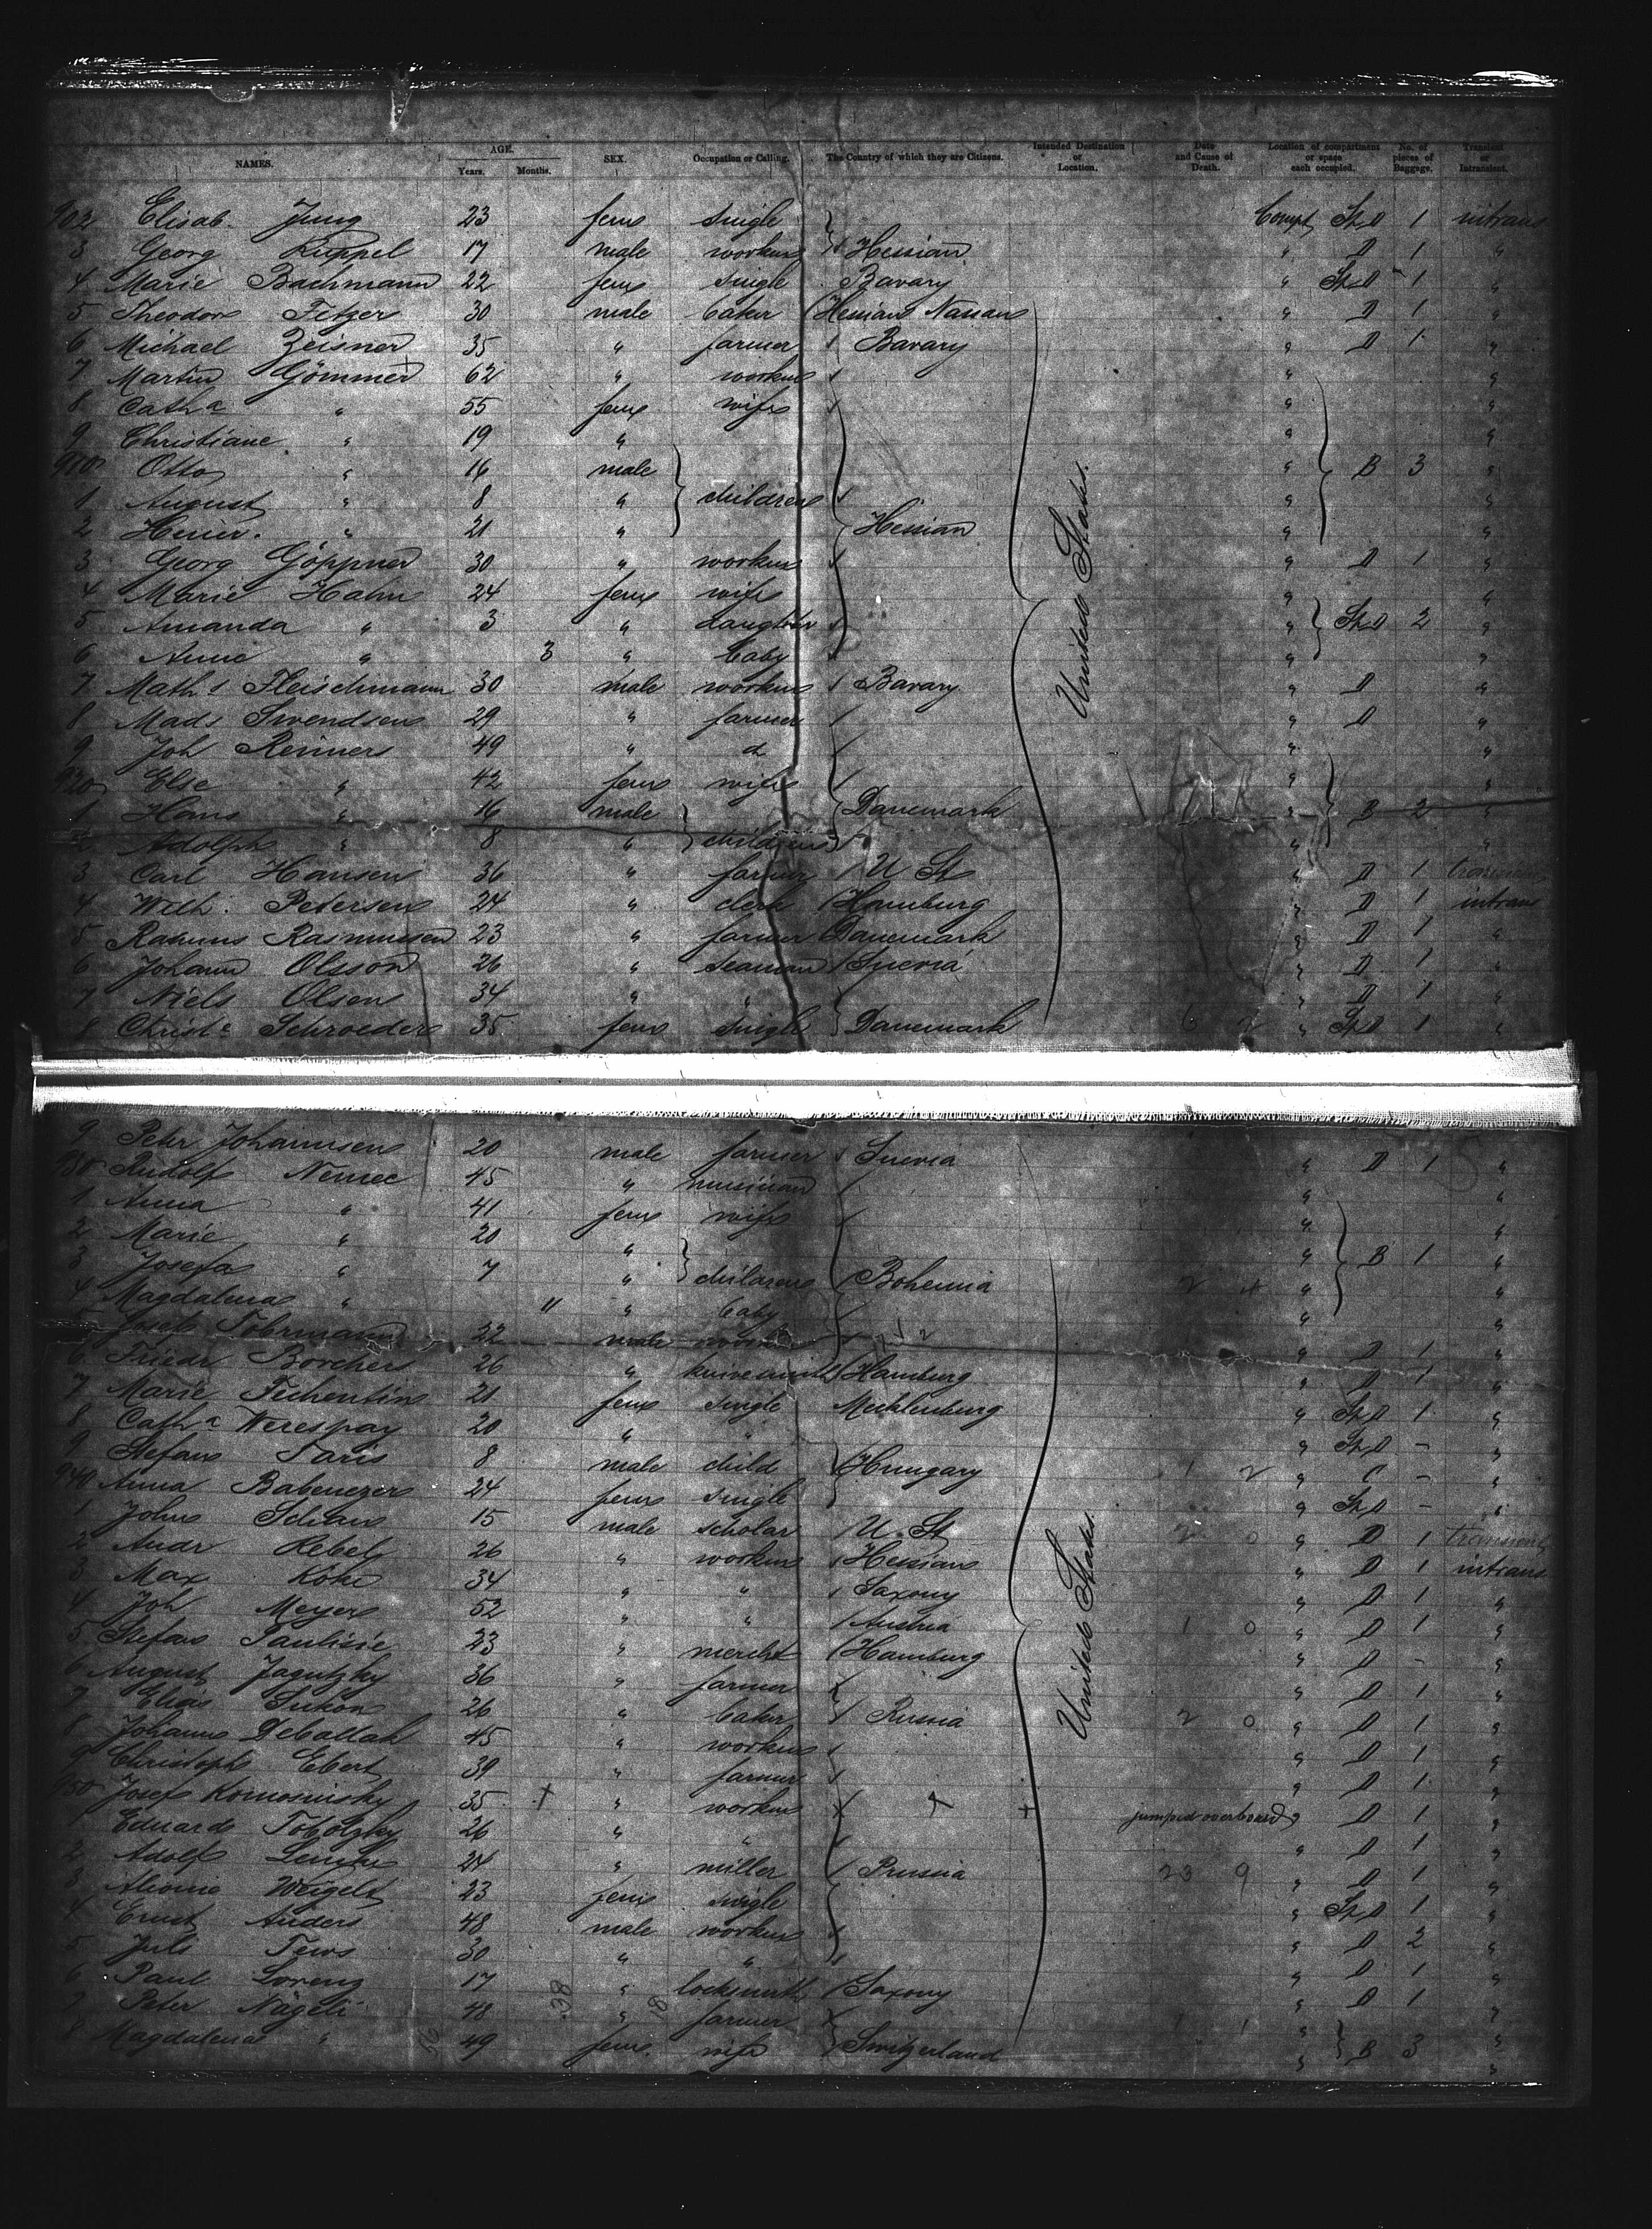 NAMES. AGE. Years. Months. SEX. Occupation or Calling. The Country of which they are Citizens. Intended Destination or Location. Date and Cause of Death. Location of compartment or space each occupied. No. of pieces of Baggage. Transient or Intransient.
902 Elisab. Jung 23 fem single Compt St.D 1 intrans
3 Georg Ruppel 17 male workm Hessian " D 1 "
4 Marie Bachmann 22 fem single Bavary " St.D 1 "
5 Theodor Fetzer 30 male baker Hessian Nassau " D 1 "
6 Michael Zeisner 35 " farmer Bavary " D 1 "
7 Martin Gömmer 62 " workm " "
8 Catha " 55 fem wife " "
9 Christiane " 19 " " "
910 Otto " 16 male " B 3 "
1 August " 8 " children " "
2 Heinr. " 21 " Hessian " "
3 Georg Göppner 30 " workm " D 1 "
4 Marie Hahn 24 fem wife " "
5 Amanda " 3 " daughter " St.D 2 "
6 Anne " 3 " baby " "
7 Maths Fleischmann 30 male workm Bavary " D "
8 Mads Swendsen 29 " farmer " D "
9 Joh Reimers 49 " d " "
920 Else " 42 fem wife " "
1 Hans " 16 male Danemark " B 2 "
2 Adolph " 8 " children " "
3 Carl Hansen 36 " farmer U St " D 1 transient
4 Wilh. Petersen 24 " clerk Hamburg " D 1 intrans
5 Rasmus Rasmussen 23 " farmer Danemark " D 1 "
6 Johann Olsson 26 " seaman Suevia " D 1 "
7 Niels Olsen 34 " " " D 1 "
8 Christe Schroeder 35 fem single Danemark " St.D 1 "
United States.
9 Peter Johannsen 20 male farmer Suevia " D 1 "
930 Rudolf Nemec 45 " musician " "
1 Anna " 41 fem wife " "
2 Marie " 20 " " B 1 "
3 Josefa " 7 " children Bohemia " "
4 Magdalena " 11 " baby " "
5 Josef Fohrmann 22 male workm " D 1 "
6 Friedr Borchers 26 " knivesmith Hamburg " D 1 "
7 Marie Fechentin 21 fem single Mecklenburg " St.D 1 "
8 Catha Werespay 20 " " " St.D - "
9 Stefan Paris 8 male child Hungary " C - "
940 Anna Babenezer 24 fem single " St.D - "
1 John Schan 15 male scholar U. St " D 1 transient
2 Andr Rebel 26 " workm Hessian " D 1 intrans
3 Max Kohe 34 " " Saxony " D 1 "
4 Joh Meyer 52 " " Austria " D 1 "
5 Stefan Paulisic 23 " mercht Hamburg " D - "
6 August Jagutzky 36 " farmer " D 1 "
7 Elias Sukon 26 " baker Russia " D 1 "
8 Johanns Deballah 45 " workm " D 1 "
9 Christoph Ebert 39 " farmer " D 1 "
950 Josef Komosinsky 35 + " workm + jumped overboard " D 1 "
1 Eduard Tobolzky 26 " " " D 1 "
2 Adolf 24 " miller Prussia " D 1 "
3 Weigelt 23 fem single " St.D 1 "
4 Ernst Anders 48 male workm " D 2 "
5 Juls Tews 30 " " " D 1 "
6 Paul Lorenz 17 " locksmith Saxony " D 1 "
7 Peter Nägeli 48 " farmer " "
8 Magdalena " 49 fem. wife Switzerland " B 3 "
United States.